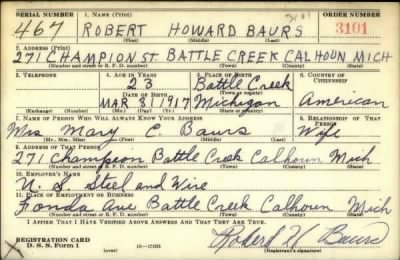 SERIAL NUMBER 1. NAME (Print) ORDER NUMBER
467 ROBERT HOWARD BAURS 3101
(First) (Middle) (Last)
2. ADDRESS (Print)
271 CHAMPION ST. BATTLE CREEK CALHOUN MICH
(Number and street or R. F. D. number) (Town) (County) (State)
3. TELEPHONE 4. AGE IN YEARS 5. PLACE OF BIRTH 6. COUNTRY OF CITIZENSHIP
23 Battle Creek
DATE OF BIRTH (Town or county)
MAR 31 1917 Michigan American
(Exchange) (Number) (Mo.) (Day) (Yr.) (State or country)
7. NAME OF PERSON WHO WILL ALWAYS KNOW YOUR ADDRESS 8. RELATIONSHIP OF THAT PERSON
Mrs Mary C. Baurs Wife
(Mr., Mrs., Miss) (First) (Middle) (Last)
9. ADDRESS OF THAT PERSON
271 Champion Battle Creek Calhoun Mich
(Number and street or R. F. D. number) (Town) (County) (State)
10. EMPLOYER'S NAME
U. S. Steel and Wire
11. PLACE OF EMPLOYMENT OR BUSINESS
Fonda Ave Battle Creek Calhoun Mich
(Number and street or R. F. D. number) (Town) (County) (State)
I AFFIRM THAT I HAVE VERIFIED ABOVE ANSWERS AND THAT THEY ARE TRUE.
REGISTRATION CARD
D. S. S. Form 1 Robert H Baurs
(Registrant's signature)